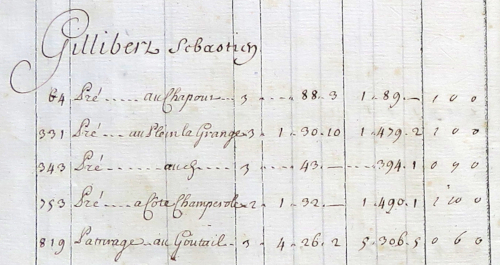 Gillibert Sebastien
64 Pré ...... au Chapour 3 .... 88. 3 1. 89. — 1 0 0
331 Pré .... au Plein la Grange 3 . 1 . 30. 10 1. 479. 2 1 0 0
343 Pré ....... au ch 3 .... 43. — .... 394. 1 0 9 0
753 Pré .... a Côte Champerole 2 . 1 .. 32. — 1. 490. 1 1 10 0
819 Paturage au Goutail . 3 . 4 . 26. 2 5. 306. 5 0 6 0